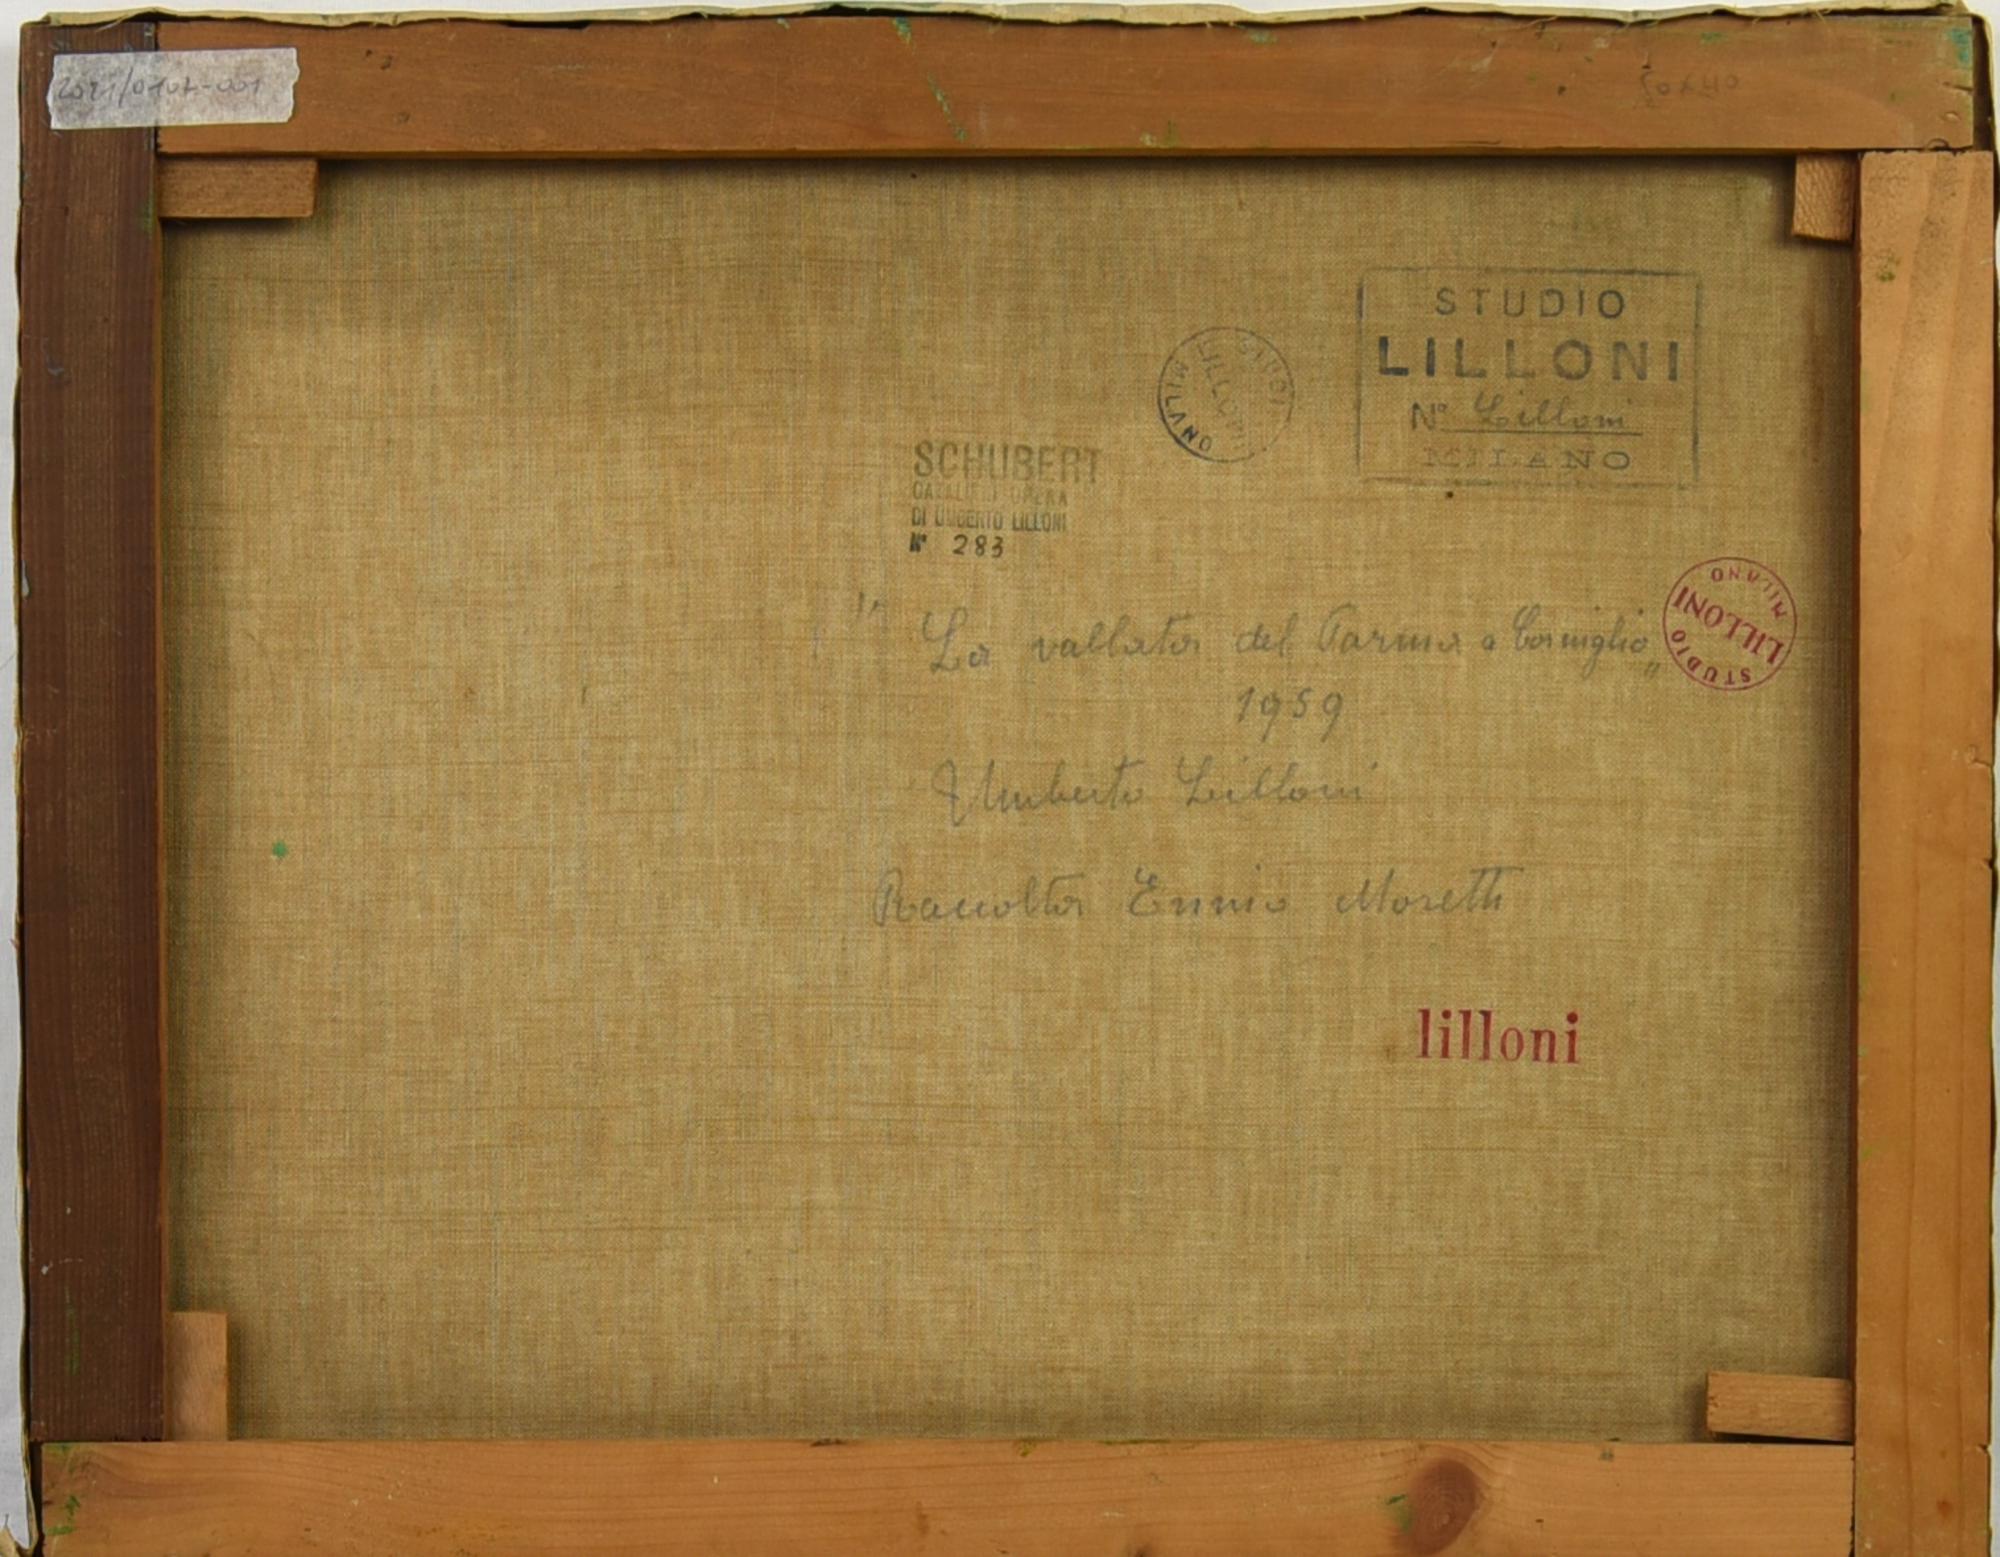 2021/0707-001
STUDIO
LILLONI
N° Lilloni
MILANO
STUDIO
LILLONI
MILANO
SCHUBERT
OPERA
DI UMBERTO LILLONI
N° 283
"La vallata del Parma a Corniglio"
1959
Umberto Lilloni
Raccolta Ennio Moretti
STUDIO
LILLONI
MILANO
lilloni